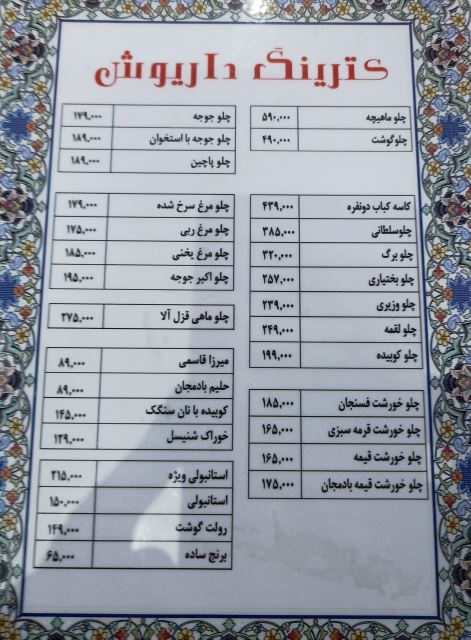 کترینگ داریوش
چلو ماهیچه ۵۹۰,۰۰۰
چلوگوشت ۴۹۰,۰۰۰
کاسه کباب دونفره ۴۳۹,۰۰۰
چلوسلطانی ۳۸۵,۰۰۰
چلو برگ ۳۲۰,۰۰۰
چلو بختیاری ۲۵۷,۰۰۰
چلو وزیری ۲۳۹,۰۰۰
چلو لقمه ۲۴۹,۰۰۰
چلو کوبیده ۱۹۹,۰۰۰
چلو خورشت فسنجان ۱۸۵,۰۰۰
چلو خورشت قرمه سبزی ۱۶۵,۰۰۰
چلو خورشت قیمه ۱۶۵,۰۰۰
چلو خورشت قیمه بادمجان ۱۷۵,۰۰۰
چلو جوجه ۱۷۹,۰۰۰
چلو جوجه با استخوان ۱۸۹,۰۰۰
چلو پاچین ۱۸۹,۰۰۰
چلو مرغ سرخ شده ۱۷۹,۰۰۰
چلو مرغ ربی ۱۷۵,۰۰۰
چلو مرغ یخنی ۱۸۵,۰۰۰
چلو اکبر جوجه ۱۹۵,۰۰۰
چلو ماهی قزل آلا ۲۷۵,۰۰۰
میرزا قاسمی ۸۹,۰۰۰
حلیم بادمجان ۸۹,۰۰۰
کوبیده با نان سنگک ۱۴۵,۰۰۰
خوراک شنیسل ۱۲۹,۰۰۰
استانبولی ویژه ۲۱۵,۰۰۰
استانبولی ۱۵۰,۰۰۰
رولت گوشت ۱۴۹,۰۰۰
برنج ساده ۶۵,۰۰۰